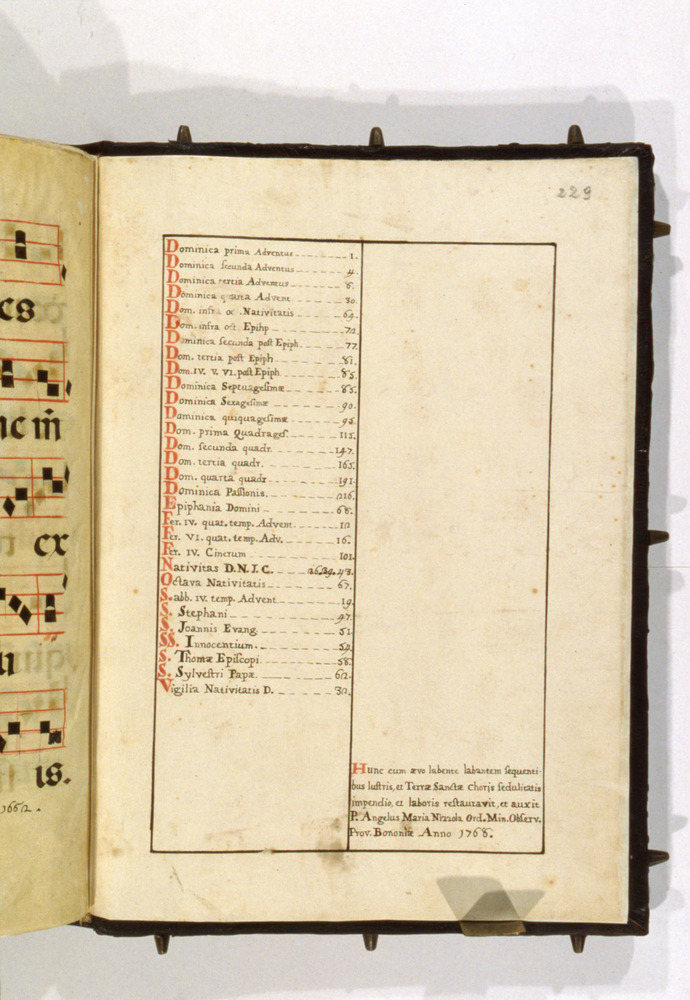 es
nc m̄
ex
is.
1662.
229
Dominica prima Adventus 1.
Dominica secunda Adventus 4.
Dominica tertia Adventus 6.
Dominica quarta Advent. 30.
Dom. infra oc. Nativitatis 64.
Dom. infra oct. Epihp 72.
Dominica secunda post Epiph. 77.
Dom. tertia post Epiph. 81.
Dom. IV. V. VI. post Epiph. 85.
Dominica Septuagesimæ 85.
Dominica Sexagesimæ 90.
Dominica quiquagesimæ 95.
Dom. prima Quadrages. 115.
Dom. secunda quadr. 147.
Dom. tertia quadr. 165.
Dom. quarta quadr. 191.
Dominica Passionis. 216.
Epiphania Domini 68.
Fer. IV. quat. temp. Advent. 12
Fer. VI. quat. temp. Adv. 16.
Fer. IV. Cinerum 101.
Nativitas D.N.J.C. 36.39.43.
Octava Nativitatis 67.
Sabb. IV. temp. Advent 19.
S. Stephani 47.
S. Joannis Evang. 51.
SS. Innocentium. 54.
S. Thomæ Episcopi 58.
S. Sylvestri Papæ. 62.
Vigilia Nativitatis D. 32.
Hunc cum ævo labente labantem sequenti-
bus lustris, et Terræ Sanctæ Choris sedulitatis
impendio, et laboris restauravit, et auxit
P. Angelus Maria Nizzola Ord. Min. Observ.
Prov. Bononiæ Anno 1768.